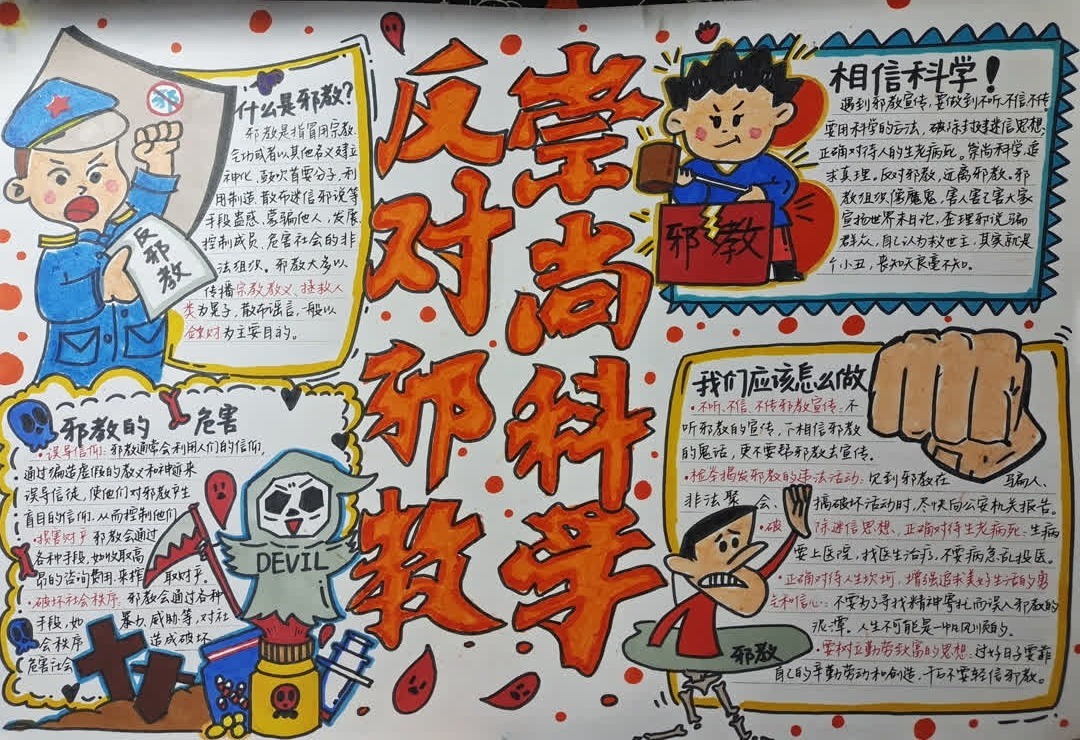 崇尚科学
反对邪教
什么是邪教?
邪
反邪教
邪教是指冒用宗教、
气功或者以其他名义建立
神化、鼓吹首要分子,利
用制造、散布迷信邪说等
手段蛊惑、蒙骗他人,发展
控制成员,危害社会的非
法组织。邪教大多以
传播宗教教义、拯救人
类为幌子,散布谣言,一般以
敛财为主要目的。
相信科学!
遇到邪教宣传,要做到不听、不信、不传
要用科学的方法,破除封建迷信思想,
正确对待人的生老病死。崇尚科学,追
求真理。反对邪教,远离邪教。邪
教组织像魔鬼,害人害己害人家
宣扬世界末日论,歪理邪说骗
群众,自己认为救世主,其实就是
个小丑,丧知天良毫不知。
邪教
邪教的危害
·误导信仰:邪教通常会利用人们的信仰,
通过编造虚假的教义和神迹来
误导信徒,使他们对邪教产生
盲目的信仰,从而控制他们
·损害财产 邪教会通过
各种手段,如收取高
昂的咨询费用,来榨取财产。
·破坏社会秩序:邪教会通过各种
手段,如暴力、威胁等,对社
会秩序造成破坏
危害社会
DEVIL
我们应该怎么做
·不听、不信、不传邪教宣传,不
听邪教的宣传,不相信邪教
的鬼话,更不要帮邪教去宣传。
·检举揭发邪教的违法活动:见到邪教在骗人、
非法聚会、搞破坏活动时,尽快向公安机关报告。
·破除迷信思想,正确对待生老病死:生病
要上医院,找医生治疗,不要病急乱投医。
·正确对待人生坎坷,增强追求美好生活的勇
气和信心:不要为了寻找精神寄托而误入邪教的
泥潭,人生不可能是一帆风顺的。
·要树立勤劳致富的思想:过好日子要靠
自己的辛勤劳动和创造,千万不要轻信邪教。
邪教